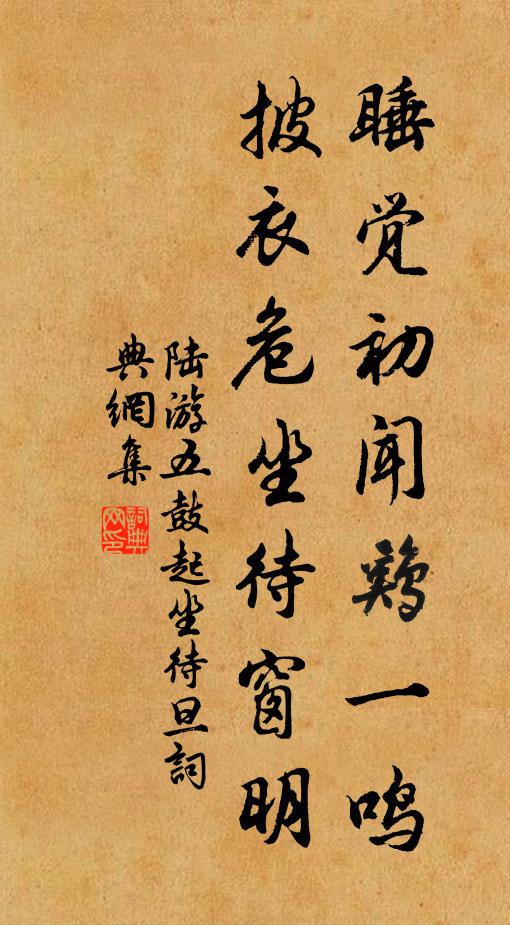 睡觉初闻鸡一鸣
披衣危坐待窗明
陆游五鼓起坐待旦詞
典網集
詞典网印